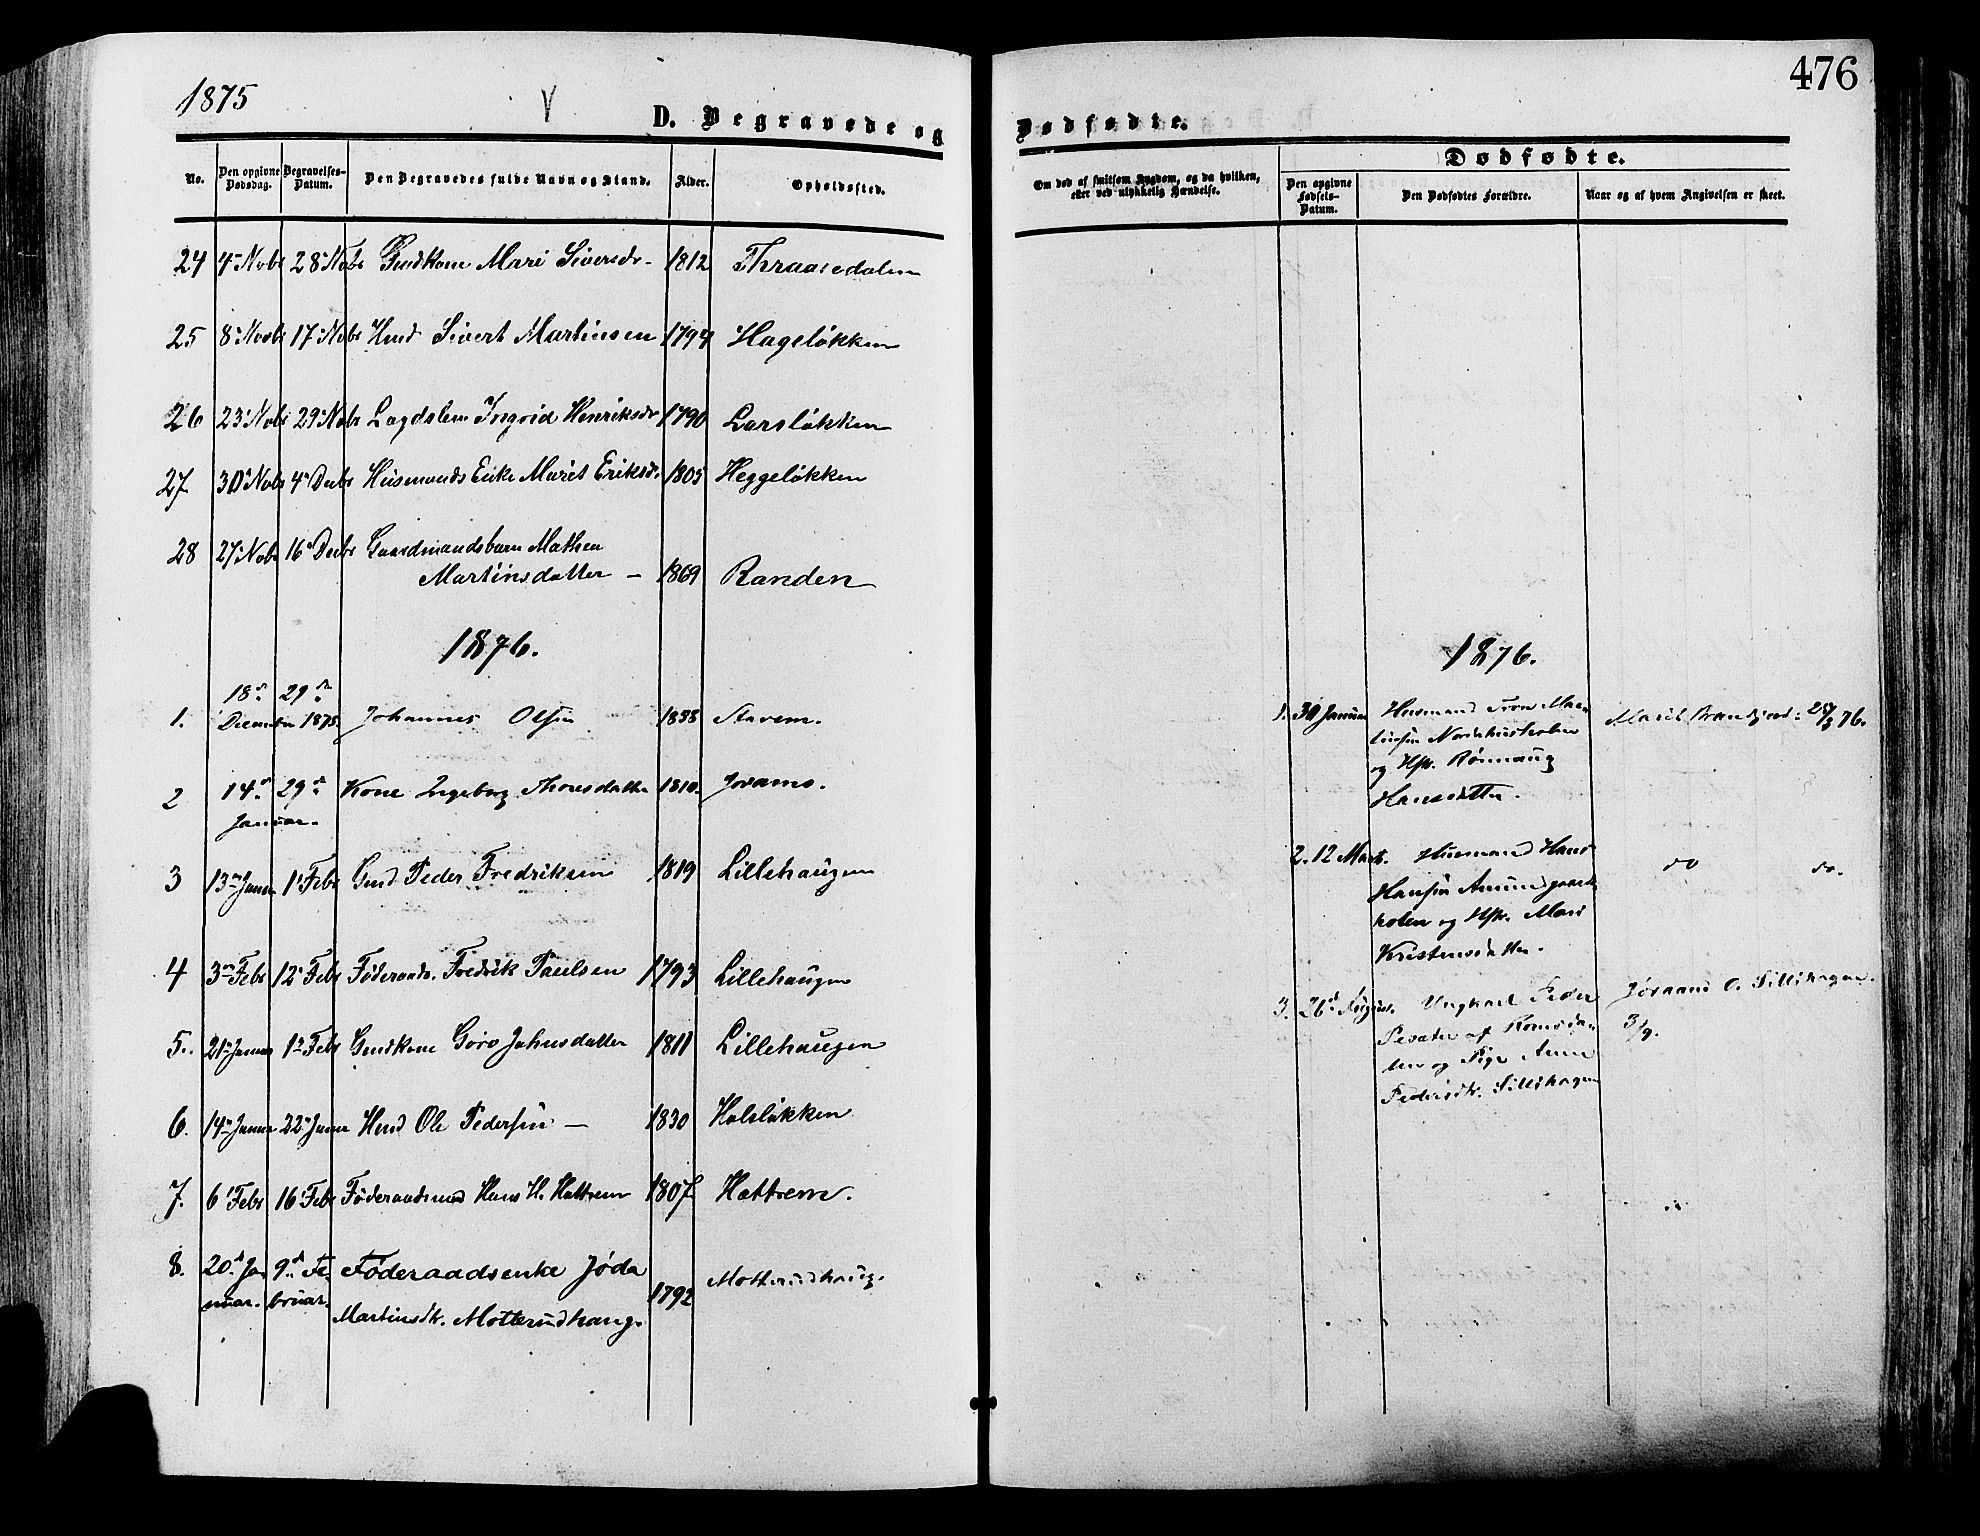 1875
V
D. Begravede og
No. Den opgivne Dødsdag. Begravelses-Datum. Den Begravedes fulde Navn og Stand. Alder. Opholdssted.
24 4de Nvbr 28 Nvbr Gmdkone Mari Siversdr. 1812 Thraasedalen
25 8 Novbr 17 Nvbr Hmd Sivert Martinsen 1794 Hageløkken
26 23 Nvbr 29 Nvbr Lægdslem Ingrid Henriksdr 1790 Larsløkken
27 30 Nvbr 4 Decbr Husmands Enke Marit Eriksdr. 1805 Heggeløkken
28 27 Nvbr 16 Decbr Gaardmandsbarn Mathea
Martinsdatter – 1869 Randen
1876.
18de 29de
1. December 1875. Johannes Olsen 1838 Aavem.
2 14de 29de Kone Ingeborg Thoresdatter 1810. Jorams.
Januar.
3 13de Januar 1 Febr Gmd Peder Fredriksen 1819 Lillehaugen
4 3de Febr 12 Febr Føderaads. Fredrik Paulsen 1793 Lillehaugen
5. 21de Januar 1 Febr Gmdkone Goro Johnsdatter 1811 Lillehaugen
6. 14de Januar 22 Januar Hmd Ole Pedersen – 1830 Holeløkken
7. 6 Febr 16 Febr Føderaadsmand Hans H. Hattrem 1807 Hattrem.
8. 20de Ja- 9de Fe- Føderaadsenke Jøda
nuar. bruar. Martinsdtr. Motterudhaug. 1792 Motterudhaug.
476
Dødfødte.
Om død af smitsom Sygdom, og da hvilken, eller ved ulykkelig Hændelse.
Dødfødte.
Den opgivne Fødsels-Datum. Den Dødfødtes Forældre. Naar og af hvem Angivelsen er skeet.
1876.
1. 30 Januar Husmand Tron Mar-
tinsen
og Hstr. Rønnaug
Hansdatter.
Marit
2. 12 Marts. Husmand Hans
Hansen Amundgaard-
holen og Hstr. Mari
Kristensdatter.
do do.
3. 26de August. Ungkarl Peder
af Romsda-
len og Pige Anne
Pedersdtr. Lillehagen
Jøraand O. Lillehagen.
3/9.